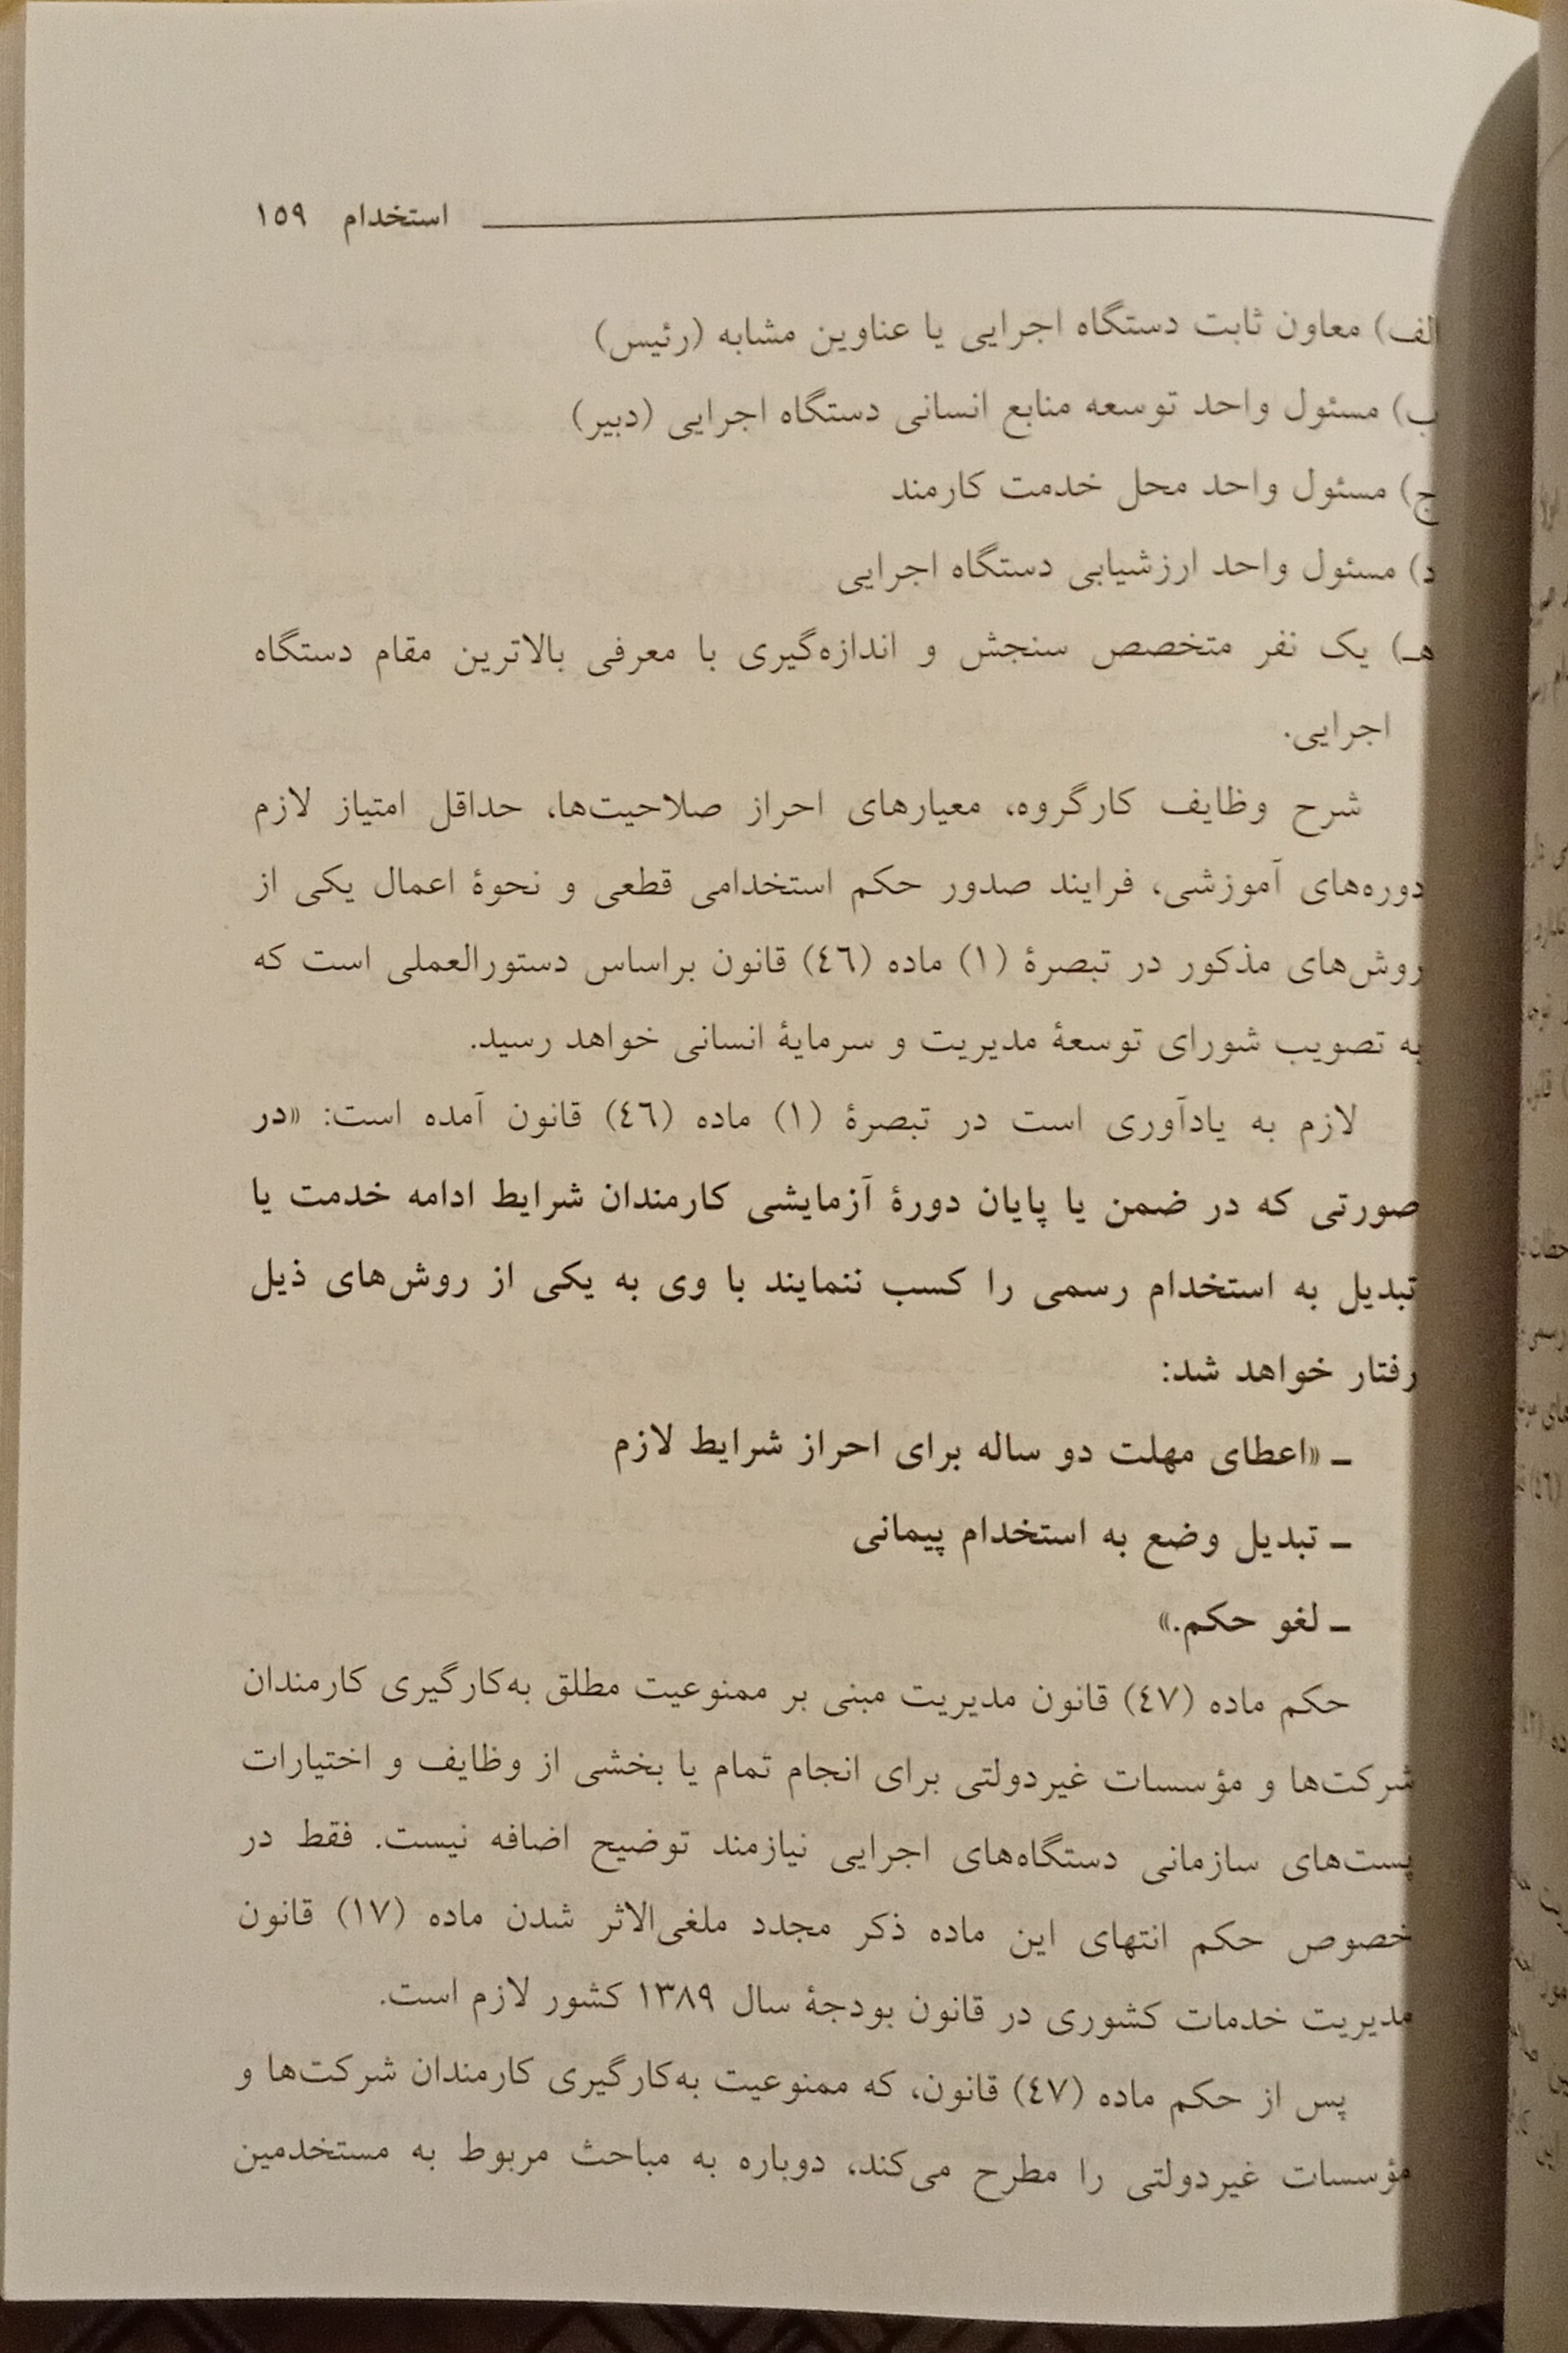 استخدام ۱۵۹
الف) معاون ثابت دستگاه اجرایی یا عناوین مشابه (رئیس)
ب) مسئول واحد توسعه منابع انسانی دستگاه اجرایی (دبیر)
ج) مسئول واحد محل خدمت کارمند
د) مسئول واحد ارزشیابی دستگاه اجرایی
هـ) یک نفر متخصص سنجش و اندازه‌گیری با معرفی بالاترین مقام دستگاه
اجرایی.
شرح وظایف کارگروه، معیارهای احراز صلاحیت‌ها، حداقل امتیاز لازم
دوره‌های آموزشی، فرایند صدور حکم استخدامی قطعی و نحوهٔ اعمال یکی از
روش‌های مذکور در تبصرهٔ (۱) ماده (٤٦) قانون براساس دستورالعملی است که
به تصویب شورای توسعهٔ مدیریت و سرمایهٔ انسانی خواهد رسید.
لازم به یادآوری است در تبصرهٔ (۱) ماده (٤٦) قانون آمده است: «در
صورتی که در ضمن یا پایان دورهٔ آزمایشی کارمندان شرایط ادامه خدمت یا
تبدیل به استخدام رسمی را کسب ننمایند با وی به یکی از روش‌های ذیل
رفتار خواهد شد:
ـ «اعطای مهلت دو ساله برای احراز شرایط لازم
ـ تبدیل وضع به استخدام پیمانی
ـ لغو حکم.»
حکم ماده (٤۷) قانون مدیریت مبنی بر ممنوعیت مطلق به‌کارگیری کارمندان
شرکت‌ها و مؤسسات غیردولتی برای انجام تمام یا بخشی از وظایف و اختیارات
پست‌های سازمانی دستگاه‌های اجرایی نیازمند توضیح اضافه نیست. فقط در
خصوص حکم انتهای این ماده ذکر مجدد ملغی‌الاثر شدن ماده (۱۷) قانون
مدیریت خدمات کشوری در قانون بودجهٔ سال ۱۳۸۹ کشور لازم است.
پس از حکم ماده (٤۷) قانون، که ممنوعیت به‌کارگیری کارمندان شرکت‌ها و
مؤسسات غیردولتی را مطرح می‌کند، دوباره به مباحث مربوط به مستخدمین